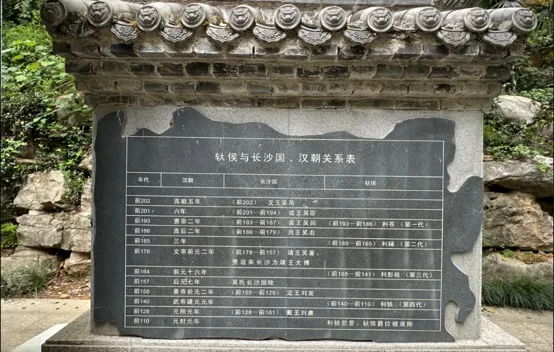 轪侯与长沙国、汉朝关系表
年代 汉朝 长沙国 轪侯
前202 高祖五年 (前202) 文王吴芮
前201 六年 (前201—前194) 成王吴臣
前193 惠帝二年 (前193—前187) 哀王吴回 (前193—前186) 利苍 (第一代)
前186 高后二年 (前186—前179) 共王吴右
前185 三年 (前185—前165) 利豨 (第二代)
前178 文帝前元二年 (前178—前157) 靖王吴著,
贾谊来长沙为靖王太傅
前164 前元十六年 (前165—前141) 利彭祖 (第三代)
前157 后元七年 吴氏长沙国除
前155 景帝前元二年 (前155—前129) 定王刘发
前140 武帝建元元年 (前140—前110) 利秩 (第四代)
前128 元朔元年 (前128—前101) 戴王刘庸
前110 元封元年 利秩犯罪,轪侯爵位被废除